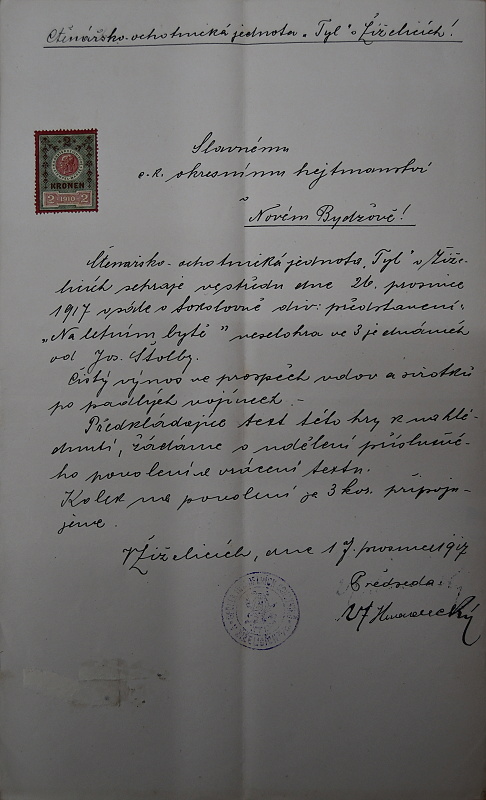 Čtenářsko-ochotnická jednota „Tyl" v Žíželicích!
2
KRONEN
2 1910 2
Slavnému
c. k. okresnímu hejtmanství
v
Novém Bydžově!
Čtenářsko-ochotnická jednota „Tyl" v Žíže-
licích sehraje ve středu dne 26. prosince
1917 v sále v Sokolovně div: představení:
„Na letním bytě" veselohra ve 3 jednáních
od Jos. Štolby.
Čistý výnos ve prospěch vdov a sirotků
po padlých vojínech.-
Předkládajíce text této hry k nahléd-
nutí, žádáme o udělení příslušné-
ho povolení a vrácení textu.
Kolek na povolení je 3 kor. připoju-
jeme.
V Žíželicích, dne 17. prosince 1917
Předseda: